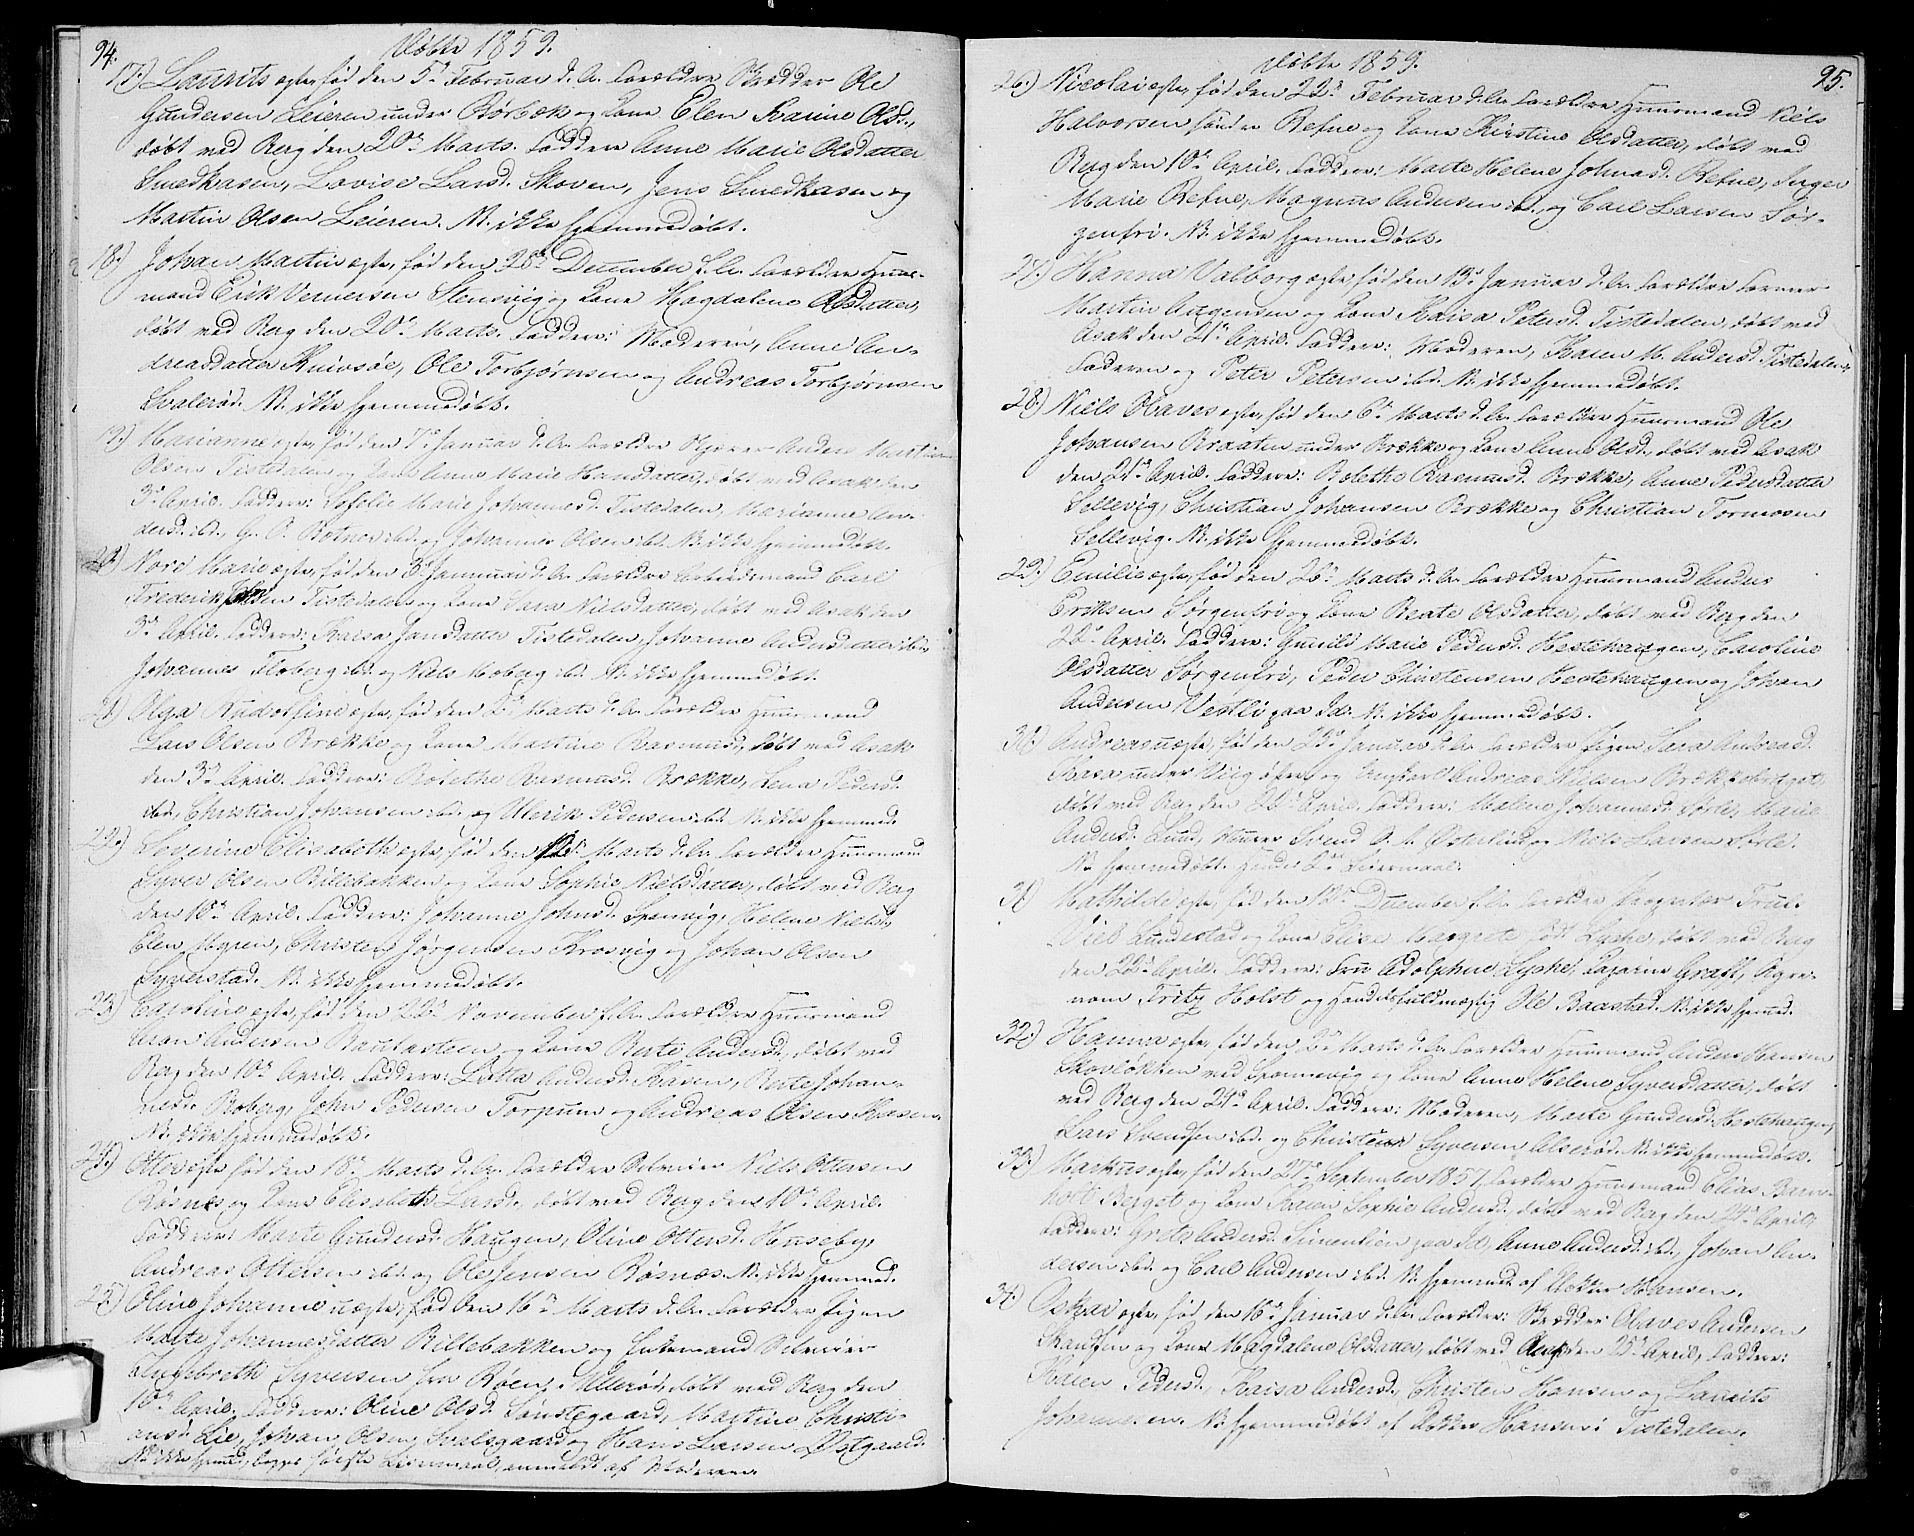 94.
Døbte 1859.
17.) Laurits ægte, fød den 5te Februar d. A. Forældre Skredder Ole
Gundersen Leieren under Rørbæk og Kone Elen Karine Olsd.,
døbt ved Berg den 20de Marts. Faddere Anne Marie Olsdatter
Smedkasen, Lovise Larsd. Skoven, Jens Smedkasen og
Martin Olsen Leieren. N. ikke hjemmedøbt.
18.) Johan Martin ægte, fød den 28de December f. A. Forældre Huus-
mand Erik Vernersen Stensvig og Kone Magdalene Olsdatter,
døbt ved Berg den 20de Marts. Faddere: Moderen, Anne An-
dreasdatter Knivsøe, Ole Torbjørnsen og Andreas Torbjørnsen
Svalerød. N. ikke hjemmedøbt.
19.) Marianne ægte, fød den 7de Januar d. A. Forældre Anders Martin
Olsen Tistedalen og Kone Anne Marie Hansdatter, døbt ved Asak den
3de April. Faddere: Marie Johannesd. Tistedalen, Marianne An-
dersd. ibd., G. P. Botner ibd. og Johannes Olsen ibd. N. ikke hjemmedøbt.
20) Nora Marie ægte, fød den Januar d. A. Forældre Arbeidsmand Carl
Frederik Tistedalen og Kone Sara Nielsdatter, døbt ved Asak den
3de April. Faddere: Kaisa Jansdatter Tistedalen, Johanne Andersdatter ibd.,
Johannes Floberg ibd. og Niels Moberg ibd. N. ikke hjemmedøbt.
21) Olga Rudolfine ægte, fød den 2de Marts d. A. Forældre Huusmand
Lars Olsen Brække og Kone Martine Rasmusd., døbt ved Asak
den 3de April. Faddere: Bolethe Rasmusd. Brække, Lena Pedersd.
ibd., Christian Johansen ibd. og Ulerik Pedersen ibd. N. ikke hjemmed.
22.) Severine Elisabeth ægte, fød den Marts d. A. Forældre Huusmand
Syver Olsen Billebakken og Kone Sophie Nielsdatter, døbt ved Berg
den 10de April. Faddere: Johanne Johnsd. Sponvig, Helene Nielsd.,
Elen Myren, Christen Jørgensen Krosvig og Johan Olsen
Syverstad. N. ikke hjemmedøbt.
23.) Caroline ægte, fød den 22de November f. A. Forældre Huusmand
Aron Andersen og Kone Berte Andersd., døbt ved
Berg den 10de April. Faddere: Lotta Andersd. Kasen, Berte Johan-
nesd. Boberg, John Pedersen Torpum og Andreas Olsen Kasen.
N. ikke hjemmedøbt.
24.) Otter ægte, fød den 18de Marts d. A. Forældre Selveier Niels Ottersen
Røsnæs og Kone Elisabeth Larsd., døbt ved Berg den 10de April.
Faddere: Marte Gundersd. Haugen, Oline Ottersd. Huseby,
Andreas Ottersen ibd. og Ole Jensen Røsnæs. N. ikke hjemmed.
25.) Oline Johanne uægte, fød den 16de Marts d. A. Forældre Pigen
Marte Johannesdatter Billebakken og Selveier
Engebreth Syversen fra Røen, døbt ved Berg den
10de April. Faddere: Oline Olsd. Sønstegaard, Martine Christi-
ansd. Lie, Johan Olsen Svalsgaard og Hans Larsen Østgaard.
N. ikke hjemmed., begges første Leiermaal, anmeldt af Moderen.
95.
Døbte 1859.
26.) Nicolai ægte, fød den 22de Februar d. A. Forældre Huusmand Niels
Halvorsen søndre Refne og Kone Kirstine Olsdatter, døbt ved
Berg den 10de April. Faddere: Marte Helene Johnsd. Refne, Inger
Marie Refne, Magnus Andersen ibd. og Carl Larsen Sør-
genfri. N. ikke hjemmedøbt.
27.) Hanna Valborg ægte, fød den 15de Januar d. A. Forældre Former
Martin Jørgensen og Kone Kaisa Petersd. Tistedalen, døbt ved
Asak den 21de April. Faddere: Moderen, Karen M. Andersd. Tistedalen,
Faderen og Peter Petersen ibd. N. ikke hjemmedøbt.
28.) Niels Olaves ægte, fød den 6te Marts d. A. Forældre Huusmand Ole
Johansen Braaten under Brække og Kone Anne Olsd., døbt ved Asak
den 21de April. Faddere: Bolethe Rasmusd. Brække, Anne Pedersdatter
Sellevig, Christian Johansen Brække og Christian Tormosen
Sellevig. N. ikke hjemmedøbt.
29.) Emilie ægte, fød den 26de Marts d. A. Forældre Huusmand Anders
Eriksen Sørgenfri og Kone Beate Olsdatter, døbt ved Berg den
22de April. Faddere: Gunild Marie Pedersd. Hestehaugen, Caroline
Olsdatter Sørgenfri, Peder Christensen Hestehaugen og Johan
Andersen Vestli paa Id. N. ikke hjemmedøbt.
30.) Andreas uægte, fød den 23de Januar d. A. Forældre Pigen Sara Andreasd.
Kasa under Viig øfre og Ungkarl Andreas Nilsen
døbt ved Berg den 22de April. Faddere: Malene Johannesd. Sørle, Marie
Andersd. Lund, Svend O. A. Østerlind og Niels Larsen Sørle.
N. hjemmedøbt. Leiermaal.
31) Mathilde ægte, fød den 12te December f. A. Forældre Proprietær Truls
Wiel Lundestad og Kone Elise Margrete født Lyche, døbt ved Berg
den 22de April. Faddere: Fru Adolphine Lyche, Graff, Agro-
nom Fritz Holst og Handelsfuldmægtig Ole Baastad. N. ikke hjemmed.
32.) Hanna ægte, fød den 2de Marts d. A. Forældre Huusmand Anders Hansen
Skovløkken ved Sponnevig og Kone Anne Helene Syversdatter, døbt
ved Berg den 24de April. Faddere: Moderen, Marte Gundersd. Hestehaugen,
Lars Svendsen ibd. og Christian Syversen N. ikke hjemmedøbt.
33.) Markus ægte, fød den 27de September 1857, Forældre Huusmand Elias Barn-
holt Berget og Kone Karen Sophie Andersd., døbt ved Berg den 24de April.
Faddere: Grete Andersd. paa Id, Anne Andersd. ibd., Johan An-
dersen ibd. og Carl Andersen ibd. N. hjemmed. af Klokker Hansen.
34) Oskar ægte, fød den 16de Januar d. A. Forældre: Skredder Olaves Andersen
Skansen og Kone Magdalene Olsdatter, døbt ved den 25de April, Faddere:
Karen Pedersd., Kaisa Andersd., Christen Hansen og Laurits
Johannesen. N. hjemmedøbt af Klokker Hansen i Tistedalen.